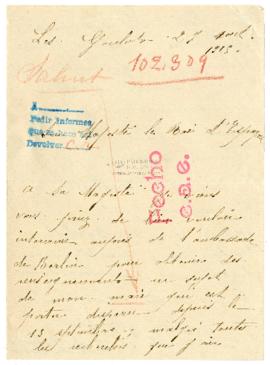 Les
1915
102.309
A
Pedir Informes
Devolver
Majesté le Roi d'Espagne
Hecho
C. de C.
A Sa Majesté
vous priez de bien vouloir
intervenir auprès de l'ambassade
de Berlin pour obtenir des
renseignements au sujet
de mon mari qui est
porté disparu depuis le
13 septembre, malgré toutes
les recherches que j'ai